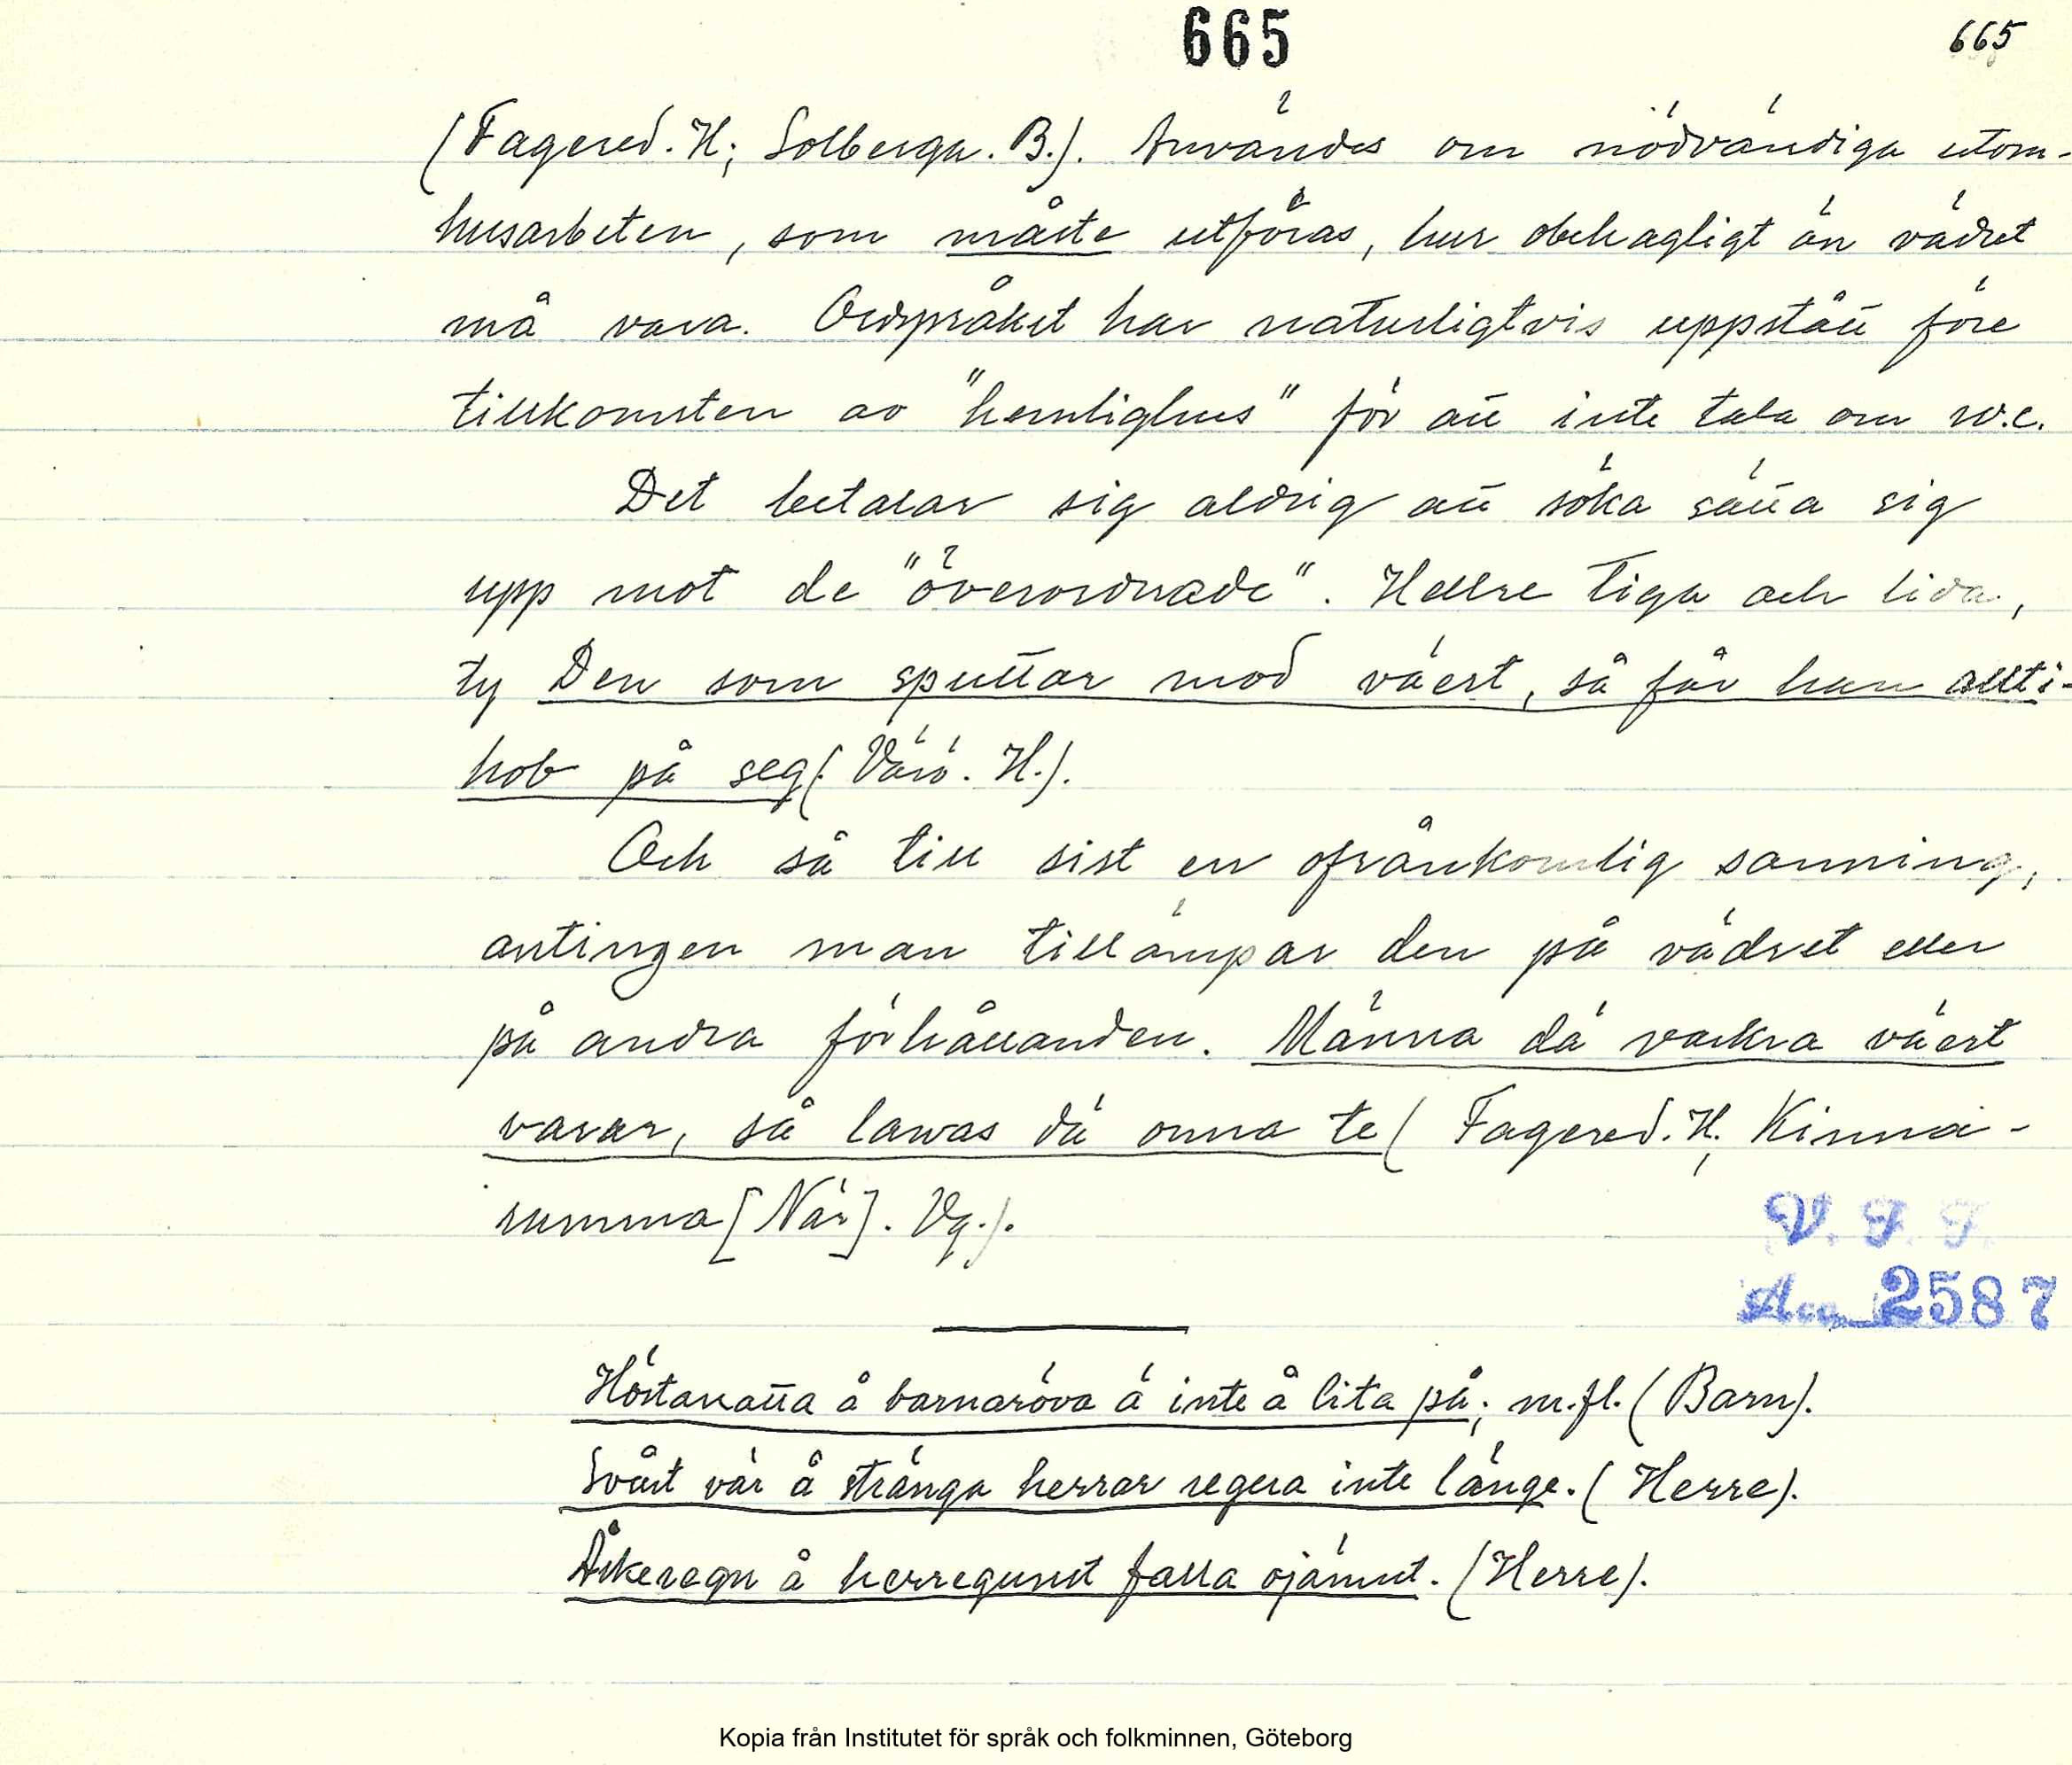 665
665
(Fagered. H; Solberga. B.). Användes om nödvändiga utom-
husarbeten, som måste utföras, hur obehagligt än vädret
må vara. Ordspråket har naturligtvis uppstått före
tillkomsten av "hemlighus" för att inte tala om w.c.
Det betalar sig aldrig att söka sätta sig
upp mot de "överordnade". Hellre tiga och lida,
ty Den som sputtar mod väert, så får han allti-
hob på seg (Värö. H.).
Och så till sist en ofrånkomlig sanning,
antingen man tillämpar den på vädret eller
på andra förhållanden. Männa dä vackra väert
varar, så lawas dä onna te (Fagered. H; Kinna-
rumma [När]. Vg.).
V. F. F.
Acc. 2587
Höstanatta å barnaröva ä inte å lita på; m.fl. (Barn).
Svårt vär å stränga herrar regera inte länge. (Herre).
Åskeregn å herregunst falla ojämnt. (Herre).
Kopia från Institutet för språk och folkminnen, Göteborg